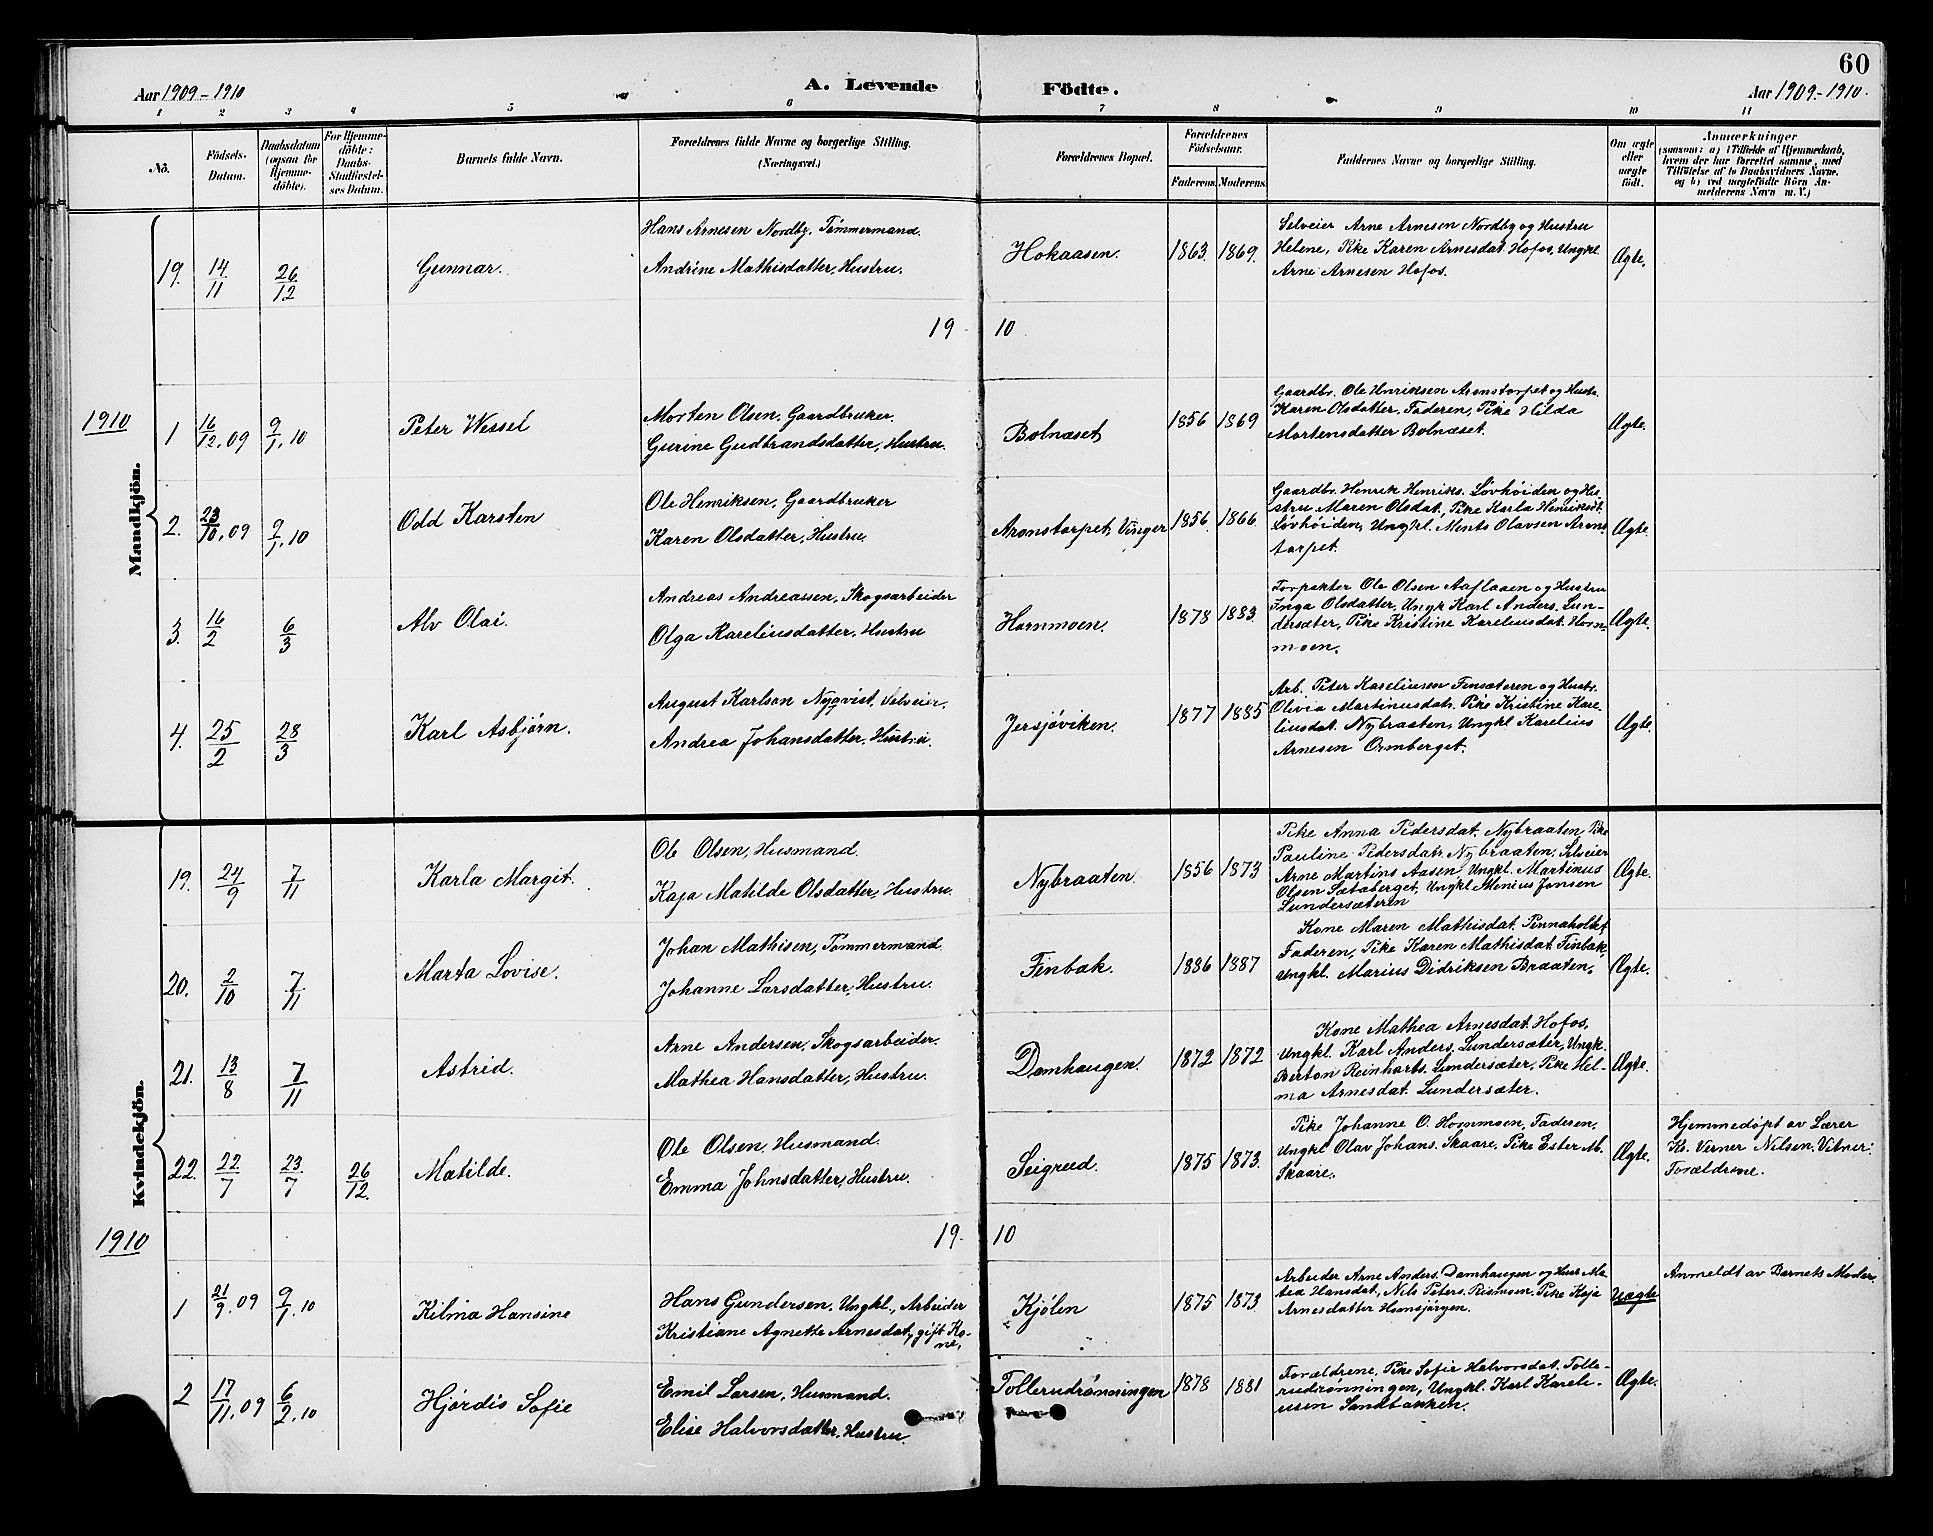 60
Aar 1909-1910
A. Levende Födte.
Aar 1909-1910.
1 2 3 4 5 6 7 8 9 10 11
No.
Födsels-Datum.
Daabsdatum (ogsaa for Hjemmedöbte).
For Hjemmedöbte: Daabs-Stadfæstelses Datum.
Barnets fulde Navn.
Forældrenes fulde Navne og borgerlige Stilling. (Næringsvei.)
Forældrenes Bopæl.
Forældrenes Födselsaar.
Faderens. Moderens.
Faddernes Navne og borgerlige Stilling.
Om ægte eller uægte födt.
Anmærkninger
(saasom: a) i Tilfælde af Hjemmedaab, hvem der har forrettet samme, med Tilföielse af to Daabsvidners Navne, og b) ved uægtefödte Börn Anmelderens Navn m. V.)
Mandkjön.
19. 14/11 26/12 Gunnar.
Hans Arnesen Nordby, Tømmermand.
Andrine Mathisdatter, Hustru.
Hokaasen. 1863. 1869.
Selveier Arne Arnesen Nordby og Hustru
Helene, Pike Karen Arnesdat. Hofos, Ungkl.
Arne Arnesen Hofos.
Ægte.
19 10
1910
1 16/12.09 9/1.10 Peter Wessel
Morten Olsen, Gaardbruker.
Gurine Gudbrandsdatter, Hustru.
Bolnæset 1856 1869
Gaardbr. Ole Henriksen Aronstorpet og Hustr.
Karen Olsdatter, Faderen, Pike Hilda
Mortensdatter Bolnæset.
Ægte.
2. 23/10.09 9/1.10 Odd Karsten
Ole Henriksen, Gaardbruker
Karen Olsdatter, Hustru.
Aronstorpet, Vinger 1856 1866
Gaardbr. Henrik Henriks. Løvhøiden og Hu-
stru Maren Olsdat., Pike Karla Henriksdt.
Løvhøiden, Ungkl. Ments Olavsen Arons-
torpet.
Ægte.
3. 16/2 6/3 Alv Olai.
Andreas Andreassen, Skogsarbeider
Olga Kareliusdatter, Hustru
Hornmoen. 1878 1883.
Torpakter Ole Olsen Aaflaaen og Hustru
Inga Olsdatter, Ungk Karl Anders. Lun-
dersæter, Pike Kristine Kareliusdat. Horn-
moen.
Ægte.
4. 25/2 28/3 Karl Asbjørn.
August Karlson Nyqvist, Selveier.
Andrea Johansdatter, Hustru.
Jersjøviken. 1877 1885
Arb. Peter Kareliusen Finsæteren og Hustr.
Olivia Martinusdatr. Pike Kristine Kare-
liusdat. Nybraaten, Ungkl. Karelius
Arnesen Ormberget.
Ægte.
Kvindekjön.
19. 24/9 7/11 Karla Margit.
Ole Olsen, Husmand.
Kaja Matilde Olsdatter, Hustru.
Nybraaten. 1856 1873
Pike Anna Pedersdat. Nybraaten, Pike
Pauline Pedersdatr. Nybraaten, Selveier
Arne Martins Aasen, Ungkl. Martinus
Olsen Sætaberget, Ungkl Menius Jonsen
Lundersæteren
Ægte.
20. 2/10 7/11 Marta Lovise.
Johan Mathisen, Tømmermand
Johanne Larsdatter, Hustru.
Finbak. 1886 1887
Kone Maren Mathisdat. Pinnaholtet
Faderen, Pike Karen Mathisdat. Finbak,
Ungkl. Marius Didriksen Braaten,
Ægte.
21. 13/8 7/11 Astrid.
Arne Andersen, Skogsarbeider.
Mathea Hansdatter, Hustru.
Damhaugen. 1872 1872
Kone Mathea Arnesdat. Hofos,
Ungkl. Karl Anders. Lundersæter, Ungk.
Berton Reinharts. Lundersæter, Pike Hel-
ma Arnesdat. Lundersæter.
Ægte.
22. 22/7 23/7 26/12. Matilde.
Ole Olsen, Husmand.
Emma Johnsdatter, Hustru.
Seigrud. 1875 1873.
Pike Johanne O. Hornmoen, Faderen,
Ungkl Olav Johans. Skaare, Pike Ester M.
Skaare.
Ægte.
Hjemmedøpt av Lærer
Ks. Verner Nilsen. Vitner:
Forældrene.
1910
19. 10
1 21/9.09 9/1.10 Kilma Hansine
Hans Gundersen, Ungkl., Arbeider
Kristiane Agnette Arnesdat, gift Ko-
ne.
Kjølen 1875 1873
Arbeider Arne Anders. Damhaugen og Hust Ma-
tea Hansdat, Nils Peters. Rismoen, Pike Kaja
Arnesdatter Hornsjørgen.
Uægte
Anmeldt av Barnets Moder
2 17/11.09 6/2.10 Hjørdis Sofie
Emil Larsen, Husmand.
Elise Halvorsdatter, Hustru.
Tollerudrønningen 1878 1881
Forældrene, Pike Sofie Halvorsdat. Tolle-
rudrønningen, Ungkl. Karl Kareli-
usen Sandbakken.
Ægte.